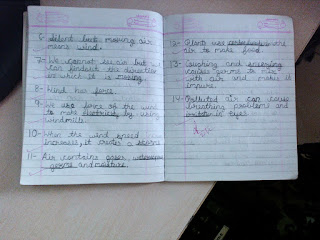 6- silent but moving air
means wind.
7- We cannot see air but we
can feel the direction
in which it is moving.
8- Wind has force.
9- We use force of the wind
to make electricity by using
windmills.
10- When the wind speed
increases, it creates a storm.
11- Air contains gases, water vapour
germs and moisture.
12- Plants use carbon dioxide in the
air to make food.
13- Coughing and sneezing
causes germs to mix
with air and makes it
impure.
14- Polluted air can cause
breathing problems and
irritation in eyes.